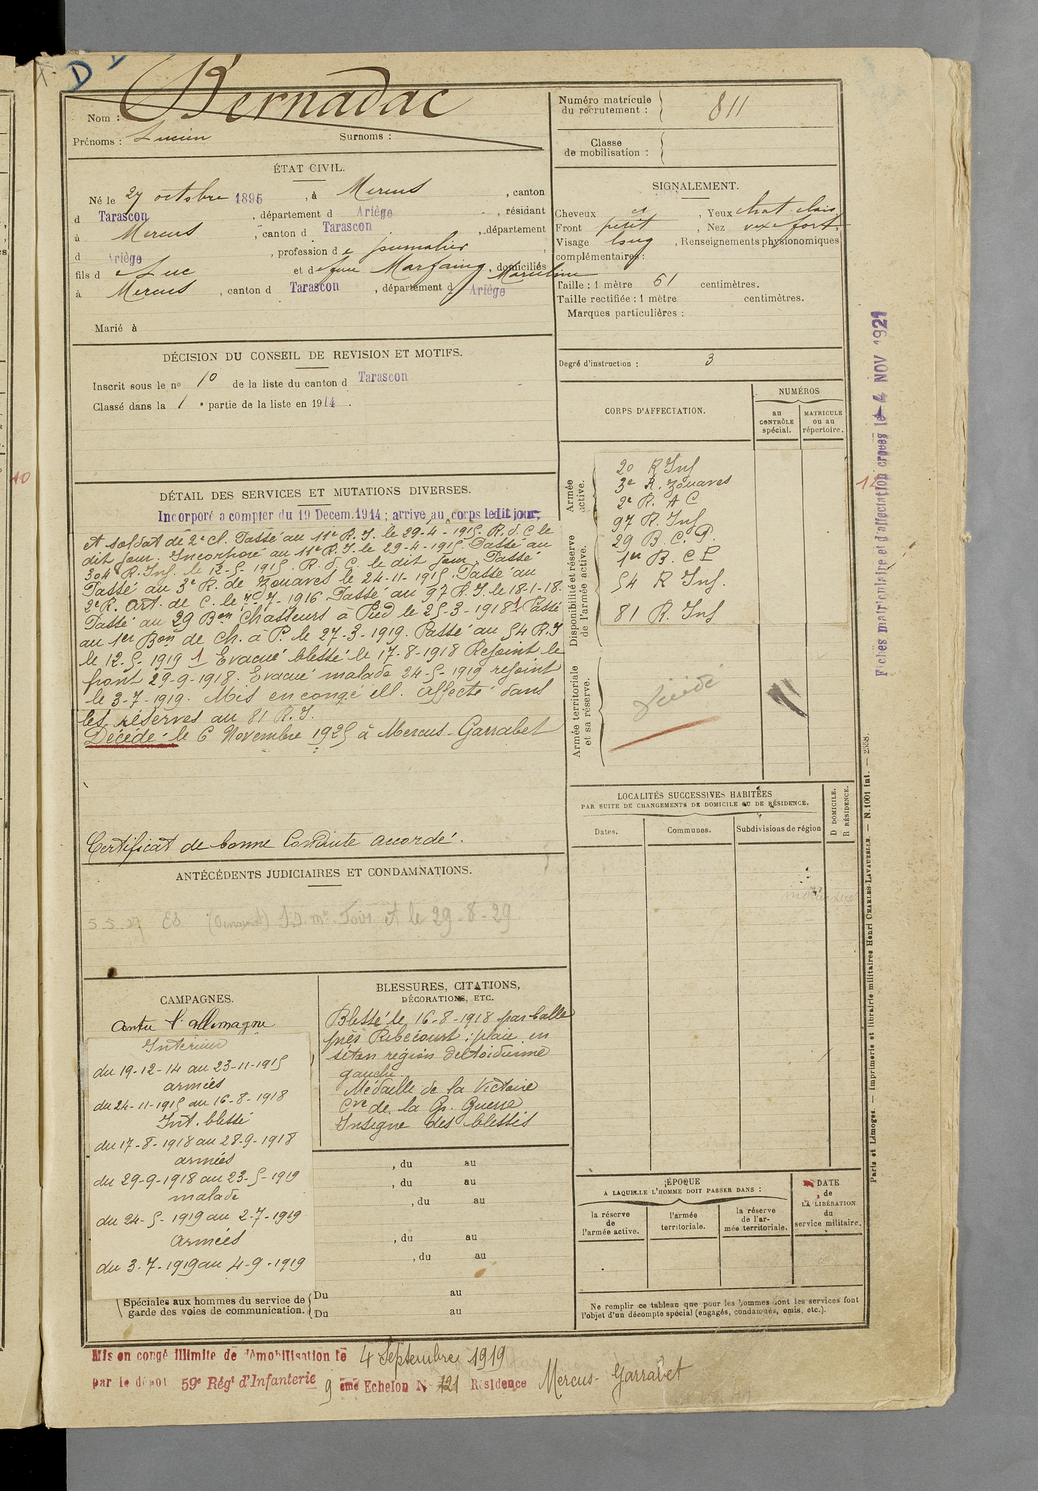 D
Nom : Bernadac
Prénoms : Lucien Surnoms :
Numéro matricule
du recrutement : 811
Classe
de mobilisation :
ÉTAT CIVIL.
Né le 27 octobre 1895, à Mercus, canton
d Tarascon, département d Ariège, résidant
à Mercus, canton d Tarascon, département
d Ariège, profession de journalier,
fils de Luc et de feue Marfaing Marceline, domiciliés
à Mercus, canton d Tarascon, département d Ariège
Marié à
SIGNALEMENT.
Cheveux, Yeux chat. clair
Front petit, Nez fort.
Visage long, Renseignements physionomiques
complémentaires :
Taille : 1 mètre 61 centimètres.
Taille rectifiée : 1 mètre centimètres.
Marques particulières :
Degré d'instruction : 3
DÉCISION DU CONSEIL DE REVISION ET MOTIFS.
Inscrit sous le no 10 de la liste du canton d Tarascon
Classé dans la 1e partie de la liste en 1914.
CORPS D'AFFECTATION.
NUMÉROS
au
CONTRÔLE
spécial.
MATRICULE
ou au
répertoire.
Armée
active.
20 R Inf
3e R. Zouaves
2e R. A C
97 R. Inf
29 B. C. P.
1er B. C P
54 R Inf.
81 R. Inf
Disponibilité et réserve
de l'armée active.
Armée territoriale
et sa réserve.
Décédé
DÉTAIL DES SERVICES ET MUTATIONS DIVERSES.
Incorporé a compter du 19 Decem. 1914 ; arrivé au corps ledit jour;
et soldat de 2e cl. Passé au 11e R. I. le 29-4-1915. R. d. C le
dit jour. Incorporé au 11e R. I. le 29-4-1915. Passé au
304e R. Inf. le 12-5-1915. R. d. C. le dit jour. Passé
Passé au 3e R. de Zouaves le 24-11-1915. Passé au
2e R. Art. de C. le 7-1916. Passé au 97 R. I. le 18-1-18.
Passé au 29 Bon Chasseurs à Pied le 25-3-1918 1 Passé
au 1er Bon de Ch. à P. le 27-3-1919. Passé au 54 R. I
le 12-5-1919 1 Evacué blessé le 17-8-1918 Rejoint le
front 29-9-1918. Evacué malade 24-5-1919 rejoint
le 3-7-1919. Mis en congé ill. Affecté dans
les réserves au 81 R. I.
Décédé le 6 Novembre 1925 à Mercus-Garrabet
Certificat de bonne Conduite accordé.
ANTÉCÉDENTS JUDICIAIRES ET CONDAMNATIONS.
le 29-8-29
LOCALITÉS SUCCESSIVES HABITÉES
PAR SUITE DE CHANGEMENTS DE DOMICILE OU DE RÉSIDENCE.
Dates.
Communes.
Subdivisions de région
D DOMICILE.
R RÉSIDENCE.
CAMPAGNES.
Contre l'allemagne
Intérieur
du 19-12-14 au 23-11-1915
armées
du 24-11-1915 au 16-8-1918
Int. blessé
du 17-8-1918 au 28-9-1918
armées
du 29-9-1918 au 23-5-1919
malade
du 24-5-1919 au 2-7-1919
Armées
du 3-7-1919 au 4-9-1919
Spéciales aux hommes du service de
garde des voies de communication.
BLESSURES, CITATIONS,
DÉCORATIONS, ETC.
Blessé le 16-8-1918 par balle
près Ribécourt : plaie en
séton région deltoïdienne
gauche.
Médaille de la Victoire
Cve de la Gr. Guerre
Insigne des blessés
, du au
, du au
, du au
, du au
, du au
Du au
Du au
ÉPOQUE
A LAQUELLE L'HOMME DOIT PASSER DANS :
la réserve
de
l'armée active.
l'armée
territoriale.
la réserve
de l'ar-
mée territoriale.
DATE
de
LA LIBÉRATION
du
service militaire.
Ne remplir ce tableau que pour les hommes dont les services font
l'objet d'un décompte spécial (engagés, condamnés, omis, etc.).
Mis en congé illimité de démobilisation le 4 Septembre 1919
par le dépôt 59e Régt d'Infanterie 9 ème Echelon No 121 Résidence Mercus-Garrabet
Fiches matriculaire et d'affectation créées le 4 NOV 1921
Paris et Limoges. — Imprimerie et librairie militaires Henri CHARLES-LAVAUZELLE. — N. 1001 int. — 2358.